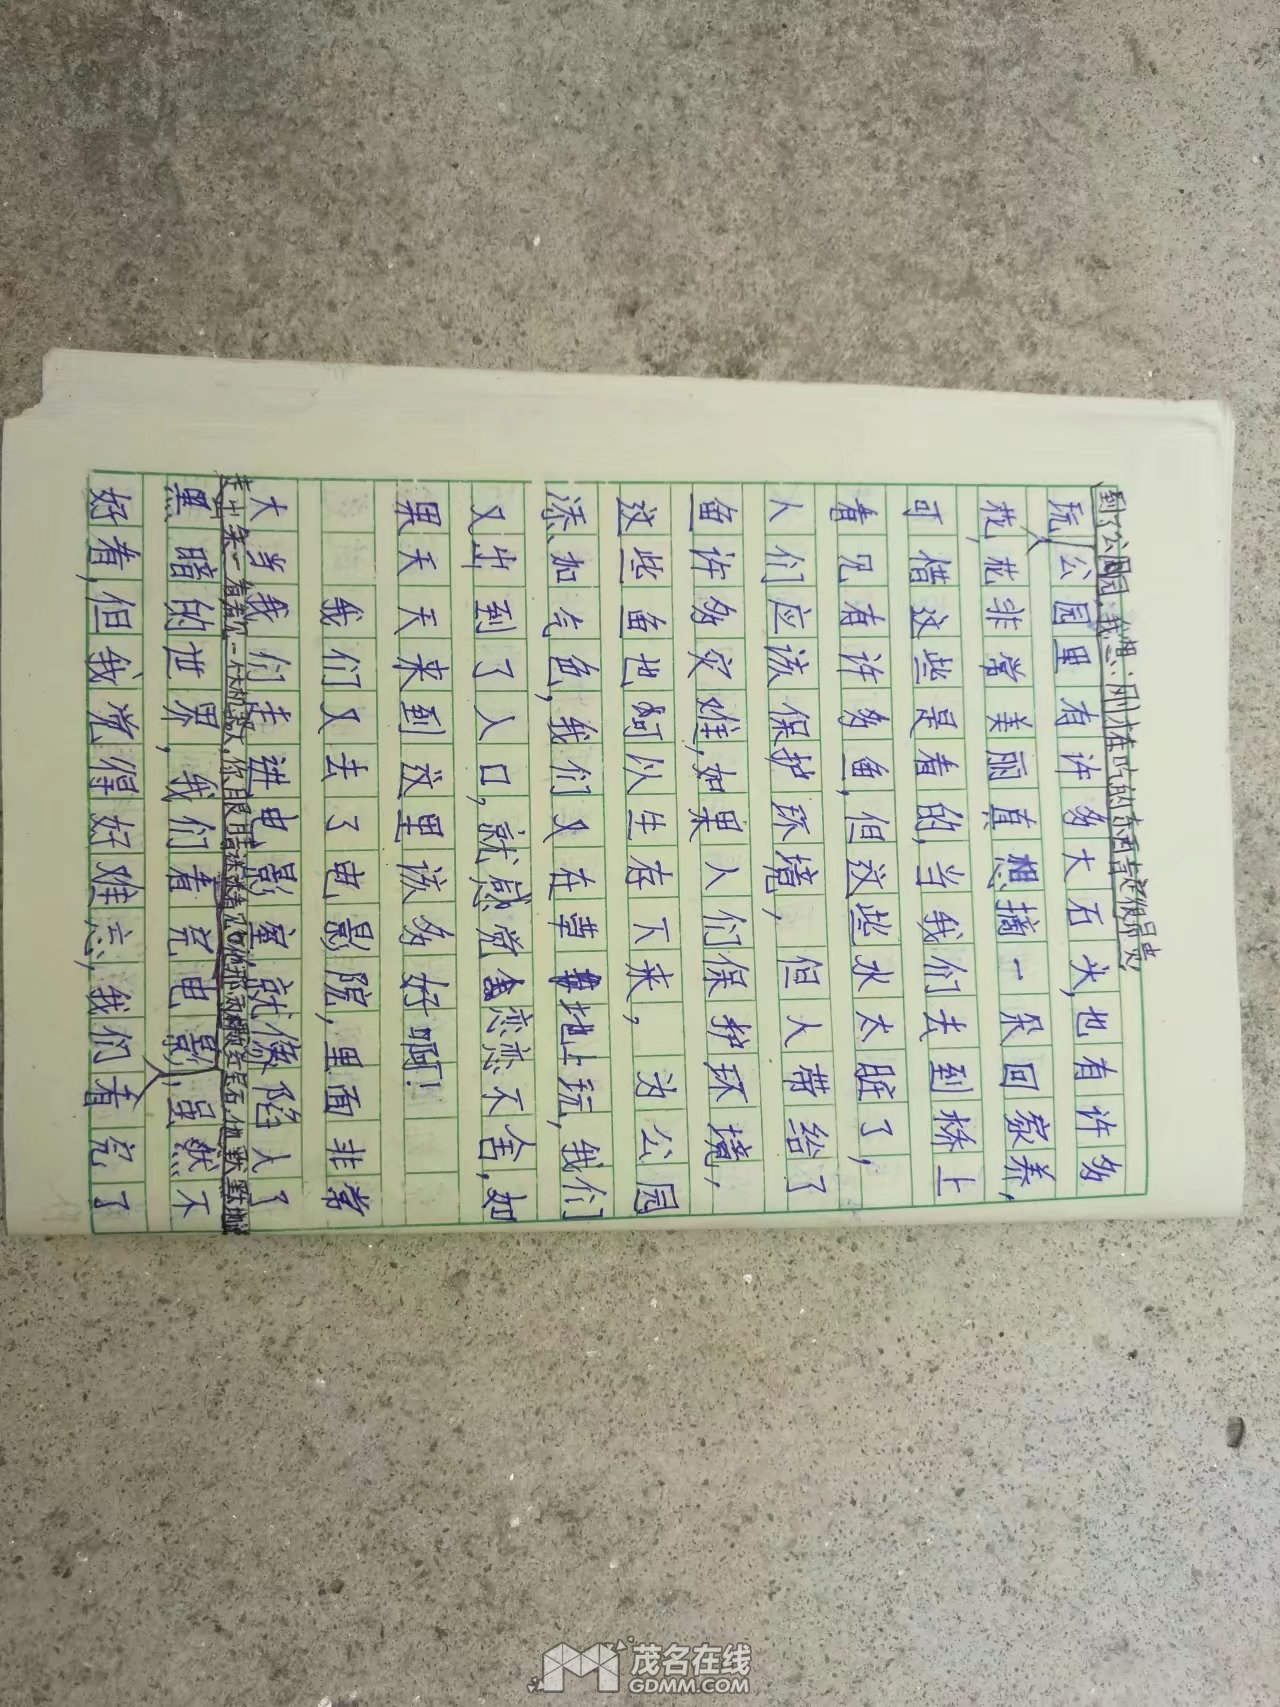 到了公园,我想:刚才在吃的东西
玩公园里有许多大石头,也有许多
花,花非常美丽直想摘一朵回家养,
可惜这些是看的,当我们去到桥上
看见有许多鱼,但这些水太脏了,
人们应该保护环境,但人带给了
鱼许多灾难,如果人们保护环境,
这些鱼也可以生存下来,为公园
添加气色,我们又在草地上玩,我们
又出到了人口,就感觉恋恋不舍,如
果天天来到这里该多好啊!
我们又去了电影院,里面非常
大当我们走进电影室,就像陷入了
走出来一看看见一个大机器人,你眼睛
黑暗的世界,我们看完电影,虽然不
好看,但我觉得好难忘,我们看完了
茂名在线
GDMM.COM